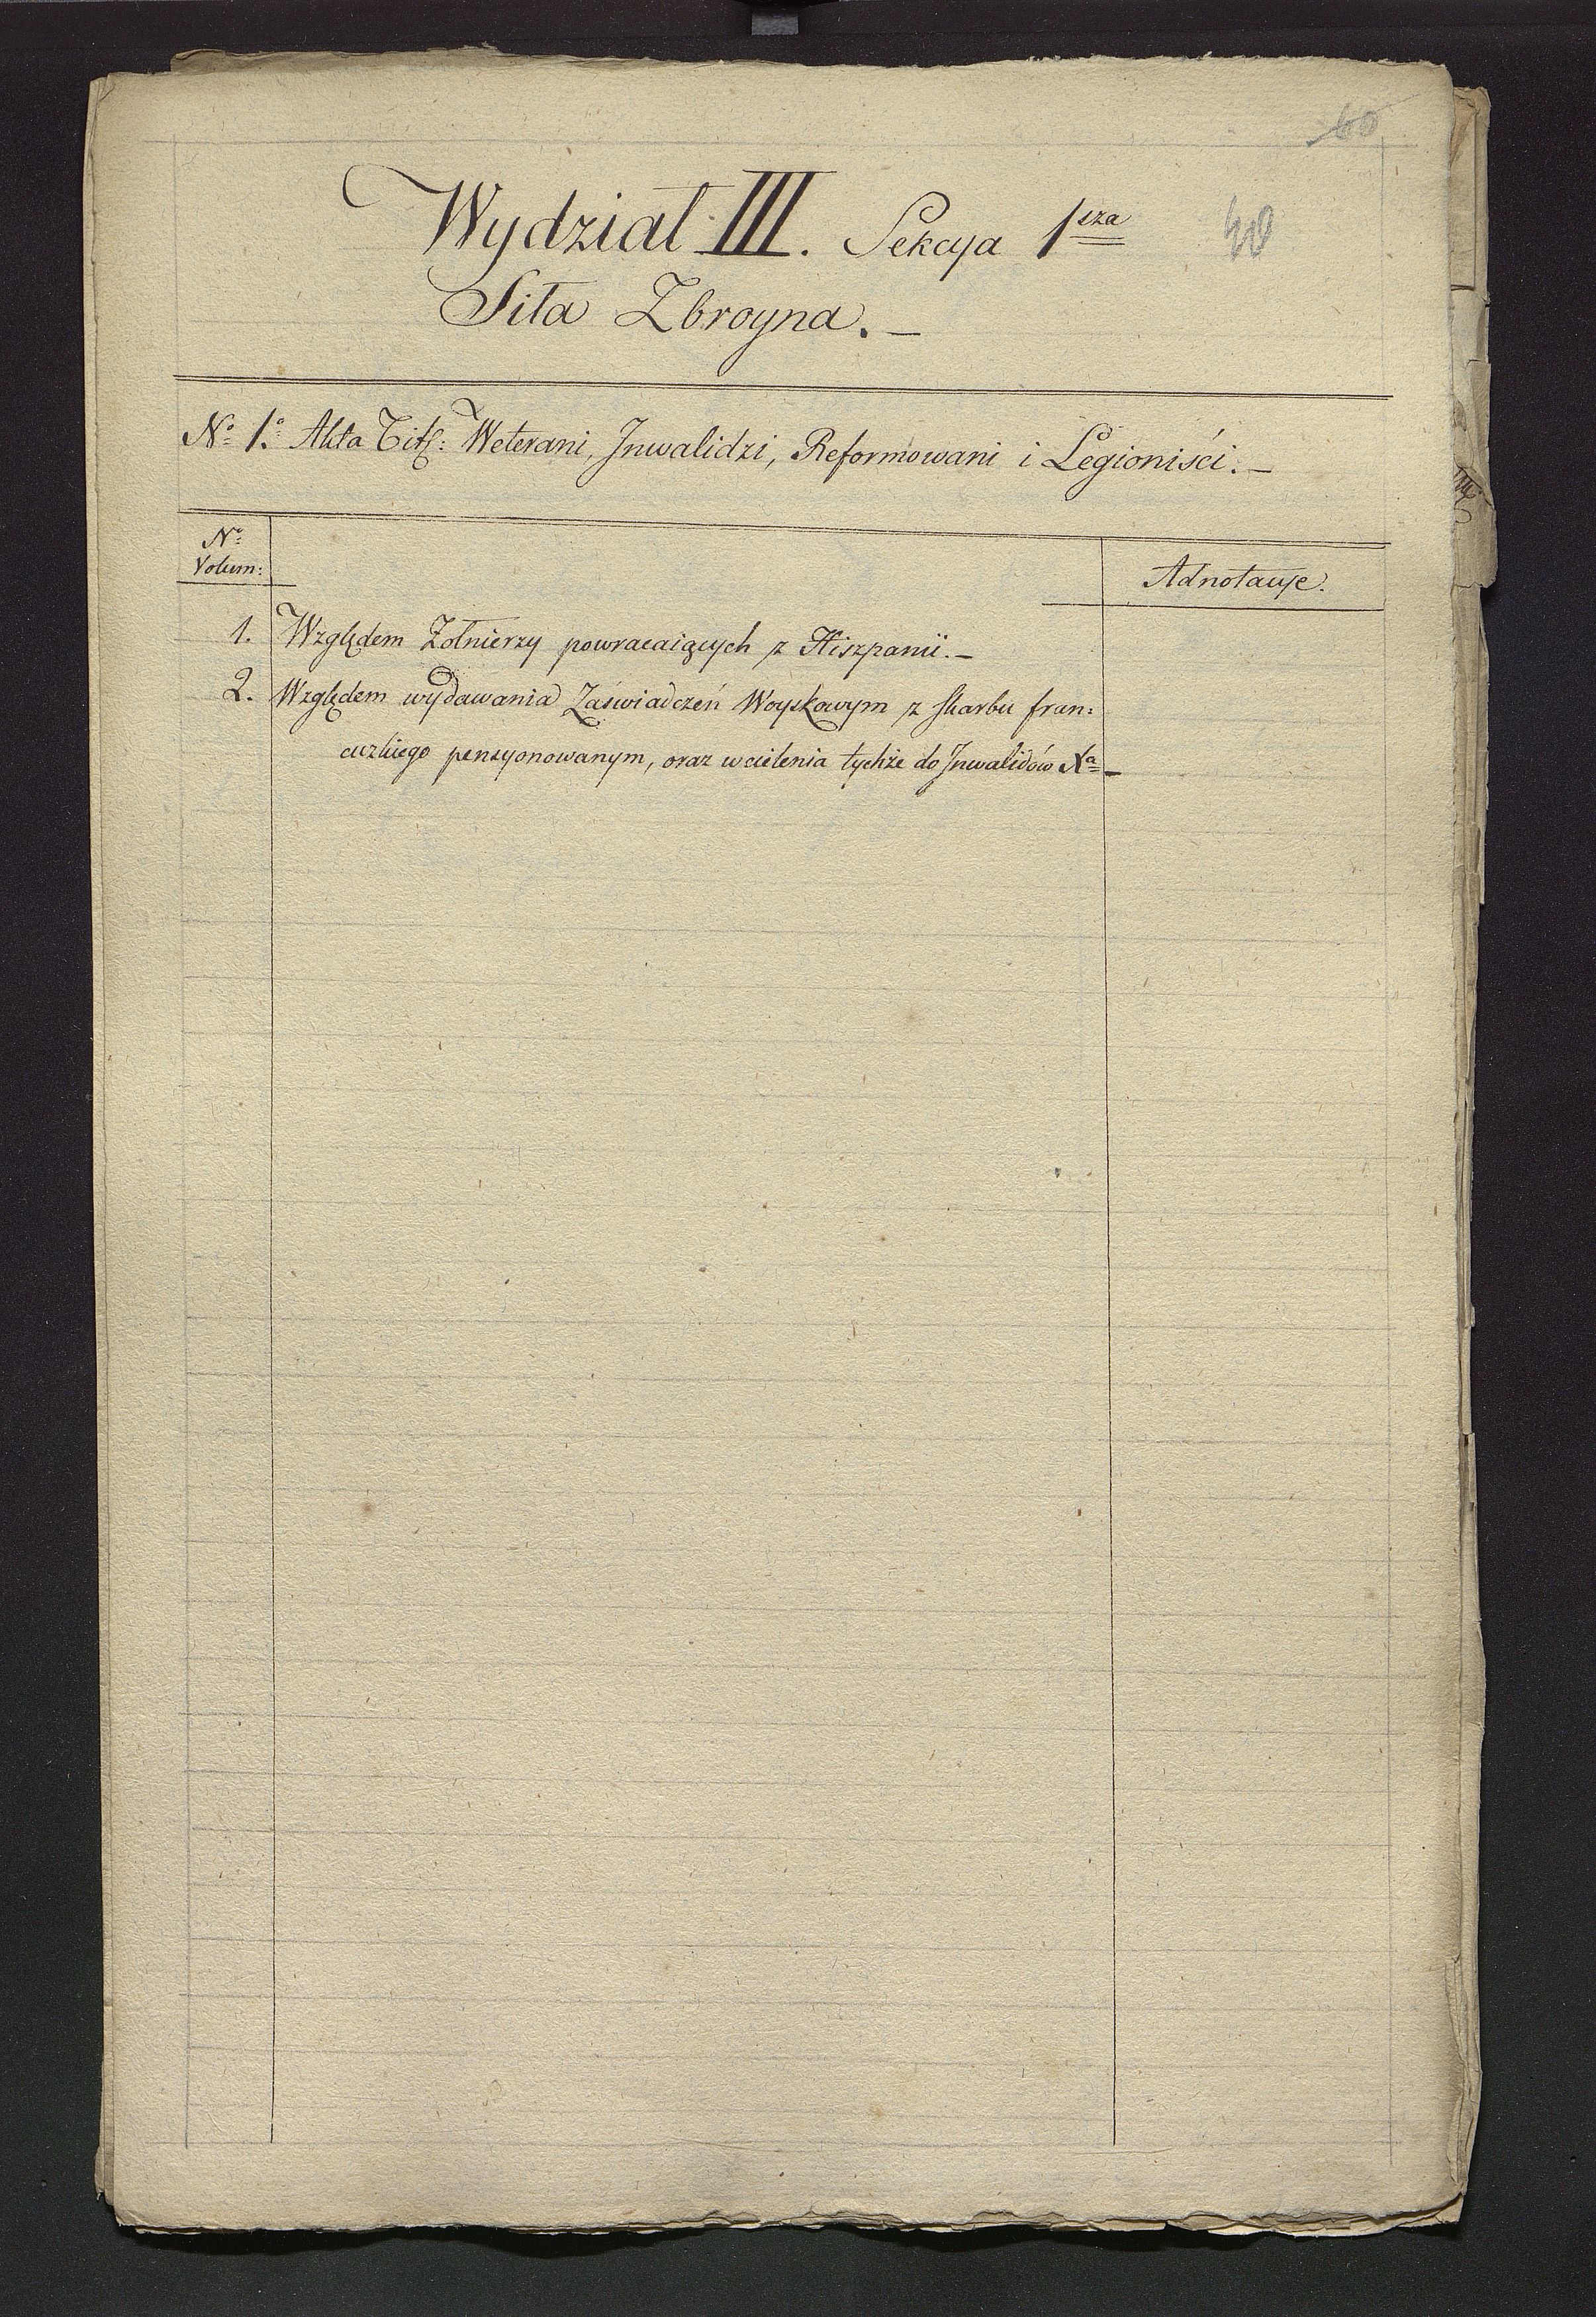 60
Wydział III. Sekcya 1sza
40
Siła Zbroyna.—
No 1o Akta Titt: Weterani, Jnwalidzi, Reformowani i Legioniści.—
No
Volum:
Adnotacye.
1. Względem Żołnierzy powracaiących z Hiszpanii.—
2. Względem wydawania Zaświadczeń Woyskowym z skarbu fran:
cuzkiego pensyonowanym, oraz wcielenia tychże do Jnwalidów